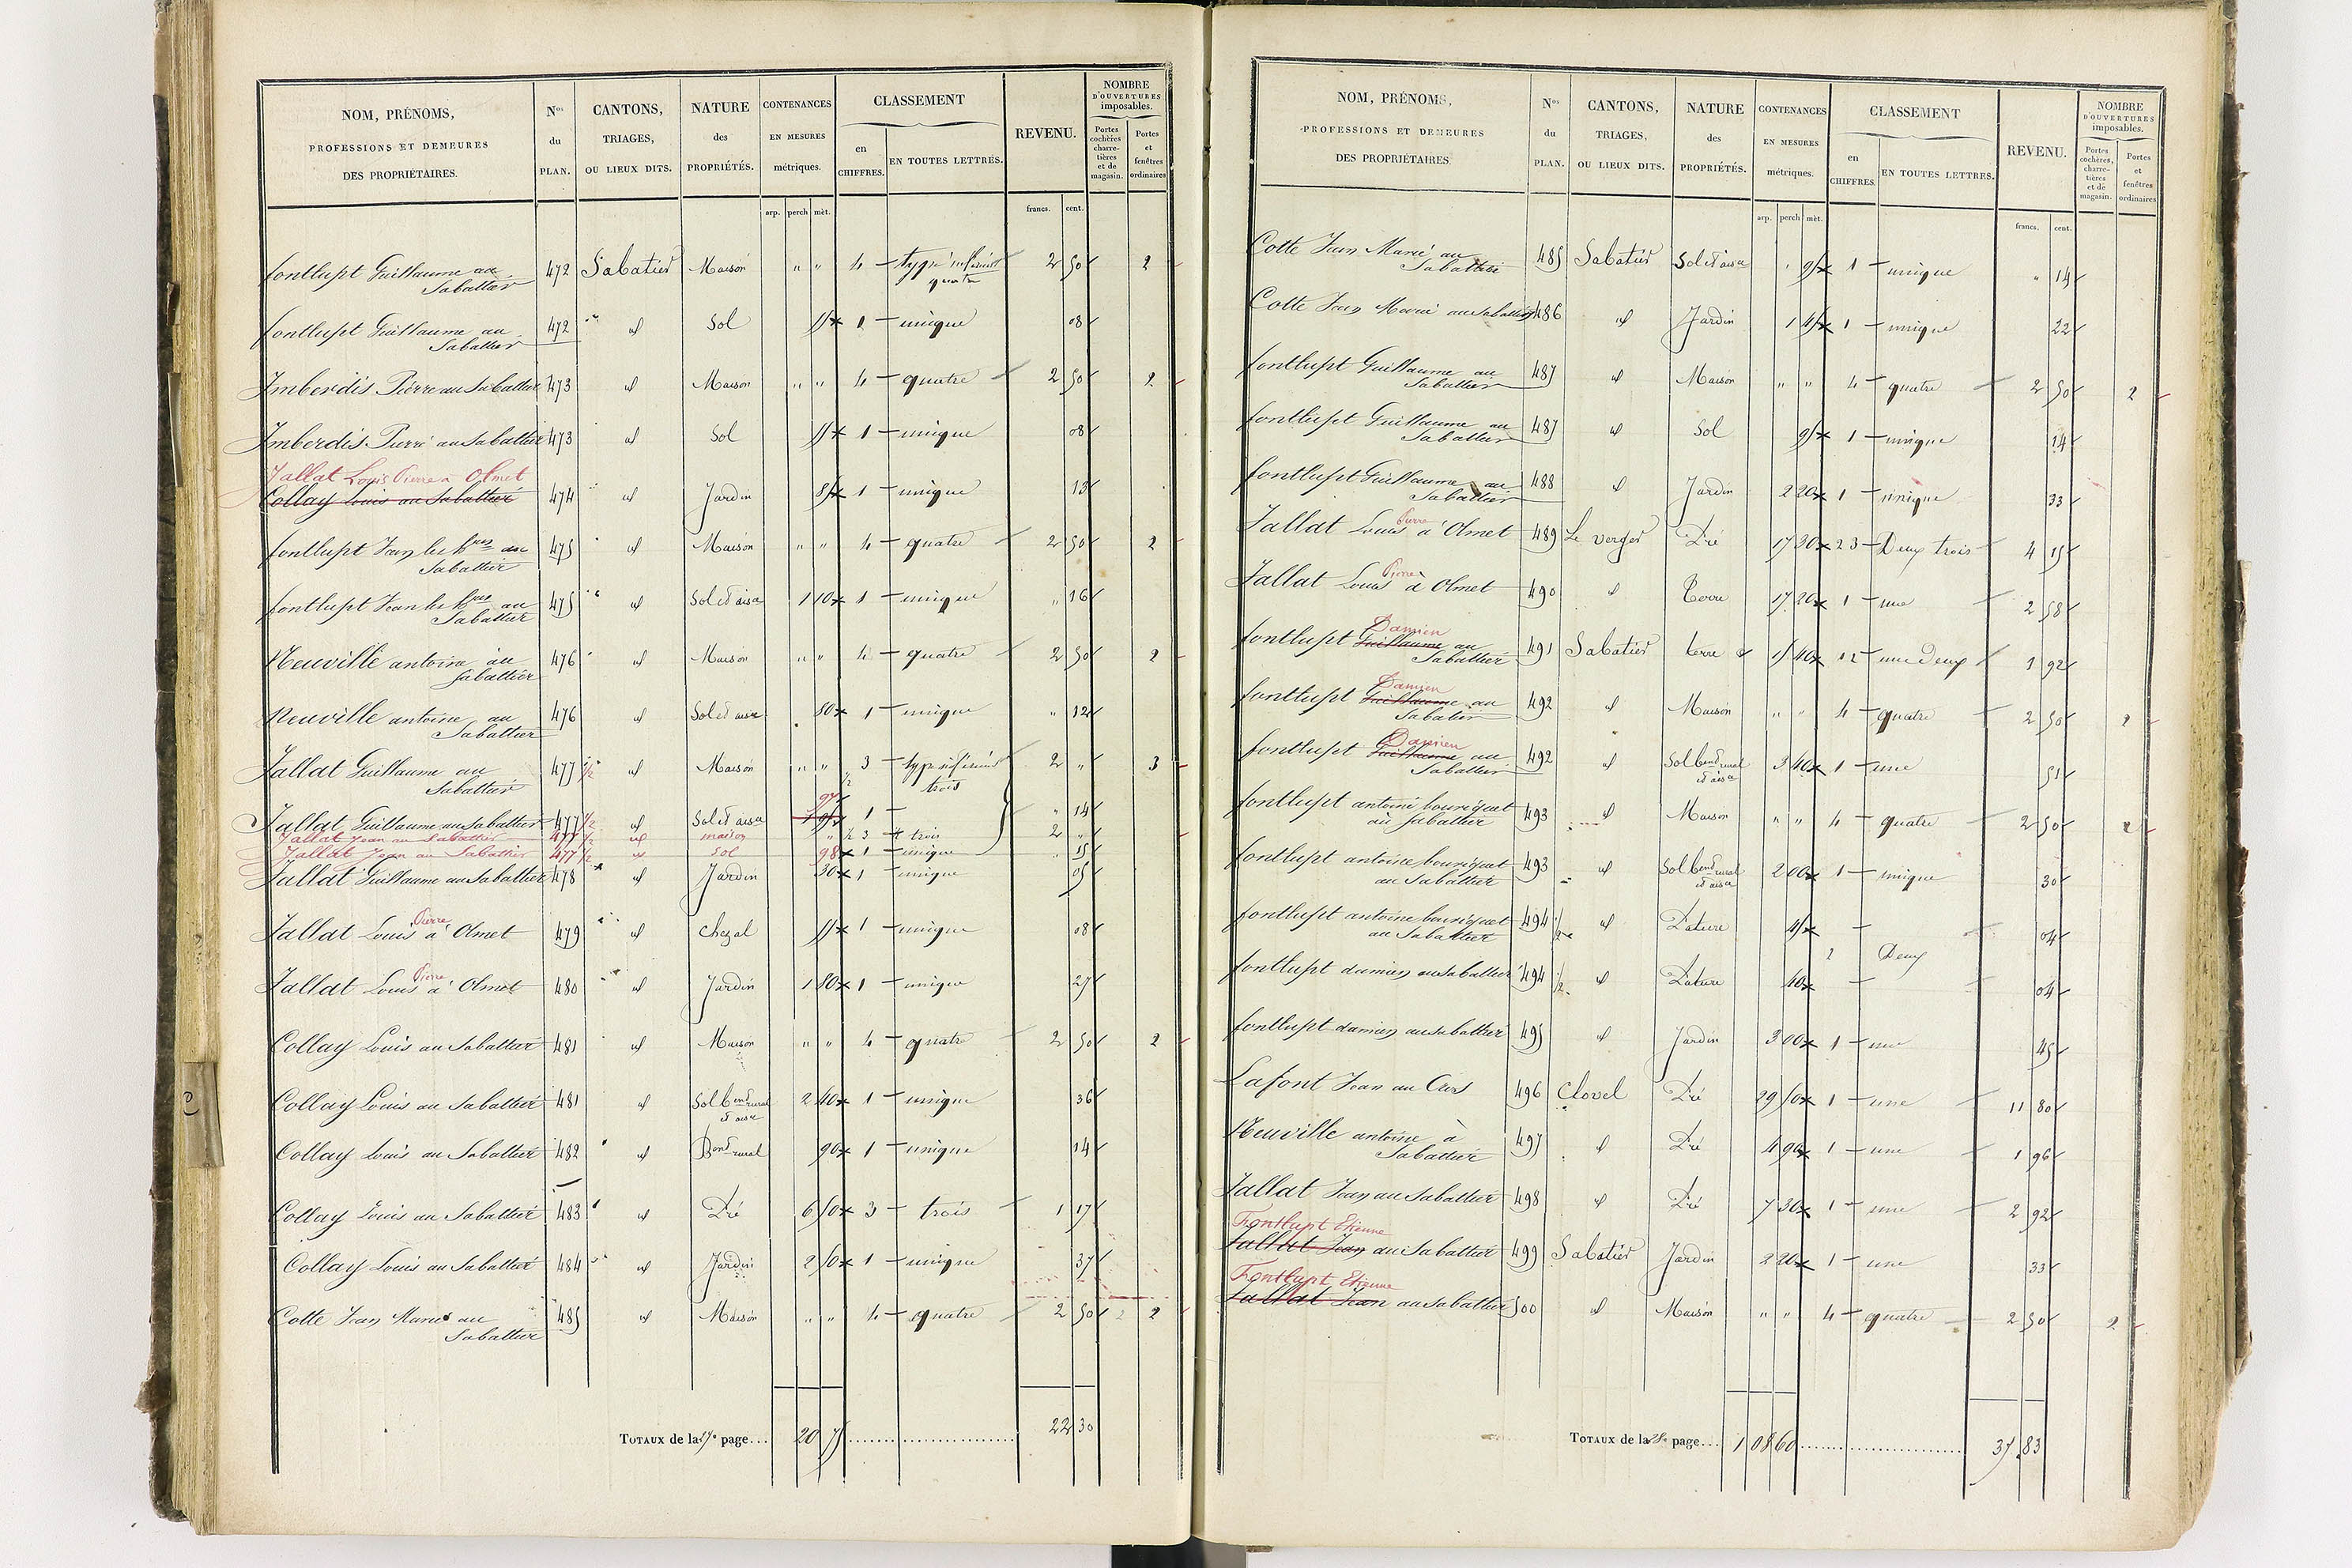 NOM, PRÉNOMS,
PROFESSIONS ET DEMEURES
DES PROPRIÉTAIRES.
Nos
du
PLAN.
CANTONS,
TRIAGES,
OU LIEUX DITS.
NATURE
des
PROPRIÉTÉS.
CONTENANCES
EN MESURES
métriques.
CLASSEMENT
en
CHIFFRES.
EN TOUTES LETTRES.
REVENU.
NOMBRE
D'OUVERTURES
imposables.
Portes
cochères
charre-
tières
et de
magasin.
Portes
et
fenêtres
ordinaires
arp. perch mèt. francs. cent.
fontlupt Guillaume au 472 Sabatier Maison " " 4 type inférieur 2 50 2
Sabattier quatre
fontlupt Guillaume au 472 id Sol 55 1 unique 08
Sabattier
Imberdis Pierre au Sabattier 473 id Maison " " 4 quatre 2 50 2
Imberdis Pierre au Sabattier 473 id Sol 55 1 unique 08
Jallat Louis Pierre à Olmet
Collay Louis au Sabattier 474 id Jardin 85 1 unique 13
fontlupt Jean les hers au 475 id Maison " " 4 quatre 2 50 2
Sabattier
fontlupt Jean les hers au 475 id Sol et aisce 1 10 1 unique " 16
Sabattier
Neuville antoine au 476 id Maison " " 4 quatre 2 50 2
Sabattier
Neuville antoine au 476 id Sol et aisce 80 1 unique " 12
Sabattier
Jallat Guillaume au 477 1/2 id Maison " " 1/2 3 type inférieur 2 " 3
Sabattier trois
97
Jallat Guillaume au Sabattier 477 1/2 id Sol et aisce 1 95 1 " 14
Jallat Jean au Sabattier 477 1/2 id maison " 1/2 3 trois 2 "
Jallat Jean au Sabattier 477 1/2 id Sol 98 1 unique 15
Jallat Guillaume au Sabattier 478 id Jardin 30 1 unique 05
Pierre
Jallat Louis à Olmet 479 id Chezal 55 1 unique 08
Pierre
Jallat Louis à Olmet 480 id Jardin 1 80 1 unique 27
Collay Louis au Sabattier 481 id Maison " " 4 quatre 2 50 2
Collay Louis au Sabattier 481 id Sol bend rural 2 40 1 unique 36
et aisce
Collay Louis au Sabattier 482 id Bend rural 90 1 unique 14
Collay Louis au Sabattier 483 id Pré 6 50 3 trois 1 17
Collay Louis au Sabattier 484 id Jardin 2 50 1 unique 37
Cotte Jean Marie au 485 id Maison " " 4 quatre 2 50 2
Sabattier
TOTAUX de la 27e page... 20 75 22 30
NOM, PRÉNOMS,
PROFESSIONS ET DEMEURES
DES PROPRIÉTAIRES.
Nos
du
PLAN.
CANTONS,
TRIAGES,
OU LIEUX DITS.
NATURE
des
PROPRIÉTÉS.
CONTENANCES
EN MESURES
métriques.
CLASSEMENT
en
CHIFFRES.
EN TOUTES LETTRES.
REVENU.
NOMBRE
D'OUVERTURES
imposables.
Portes
cochères,
charre-
tières
et de
magasin.
Portes
et
fenêtres
ordinaires
arp. perch mèt. francs. cent.
Cotte Jean Marie au 485 Sabatier Sol et aisce 95 1 unique " 14
Sabattier
Cotte Jean Marie au Sabattier 486 id Jardin 1 45 1 unique 22
fontlupt Guillaume au 487 id Maison " " 4 quatre 2 50 2
Sabattier
fontlupt Guillaume au 487 id Sol 95 1 unique 14
Sabattier
fontlupt Guillaume au 488 id Jardin 2 20 1 unique 33
Sabattier
Pierre
Jallat Louis à Olmet 489 Le verger Pré 17 30 2 3 Deux trois 4 15
Pierre
Jallat Louis à Olmet 490 id Terre 17 20 1 une 2 58
Damien
fontlupt Guillaume au 491 Sabatier terre 15 40 1 2 une Deux 1 92
Sabattier
Damien
fontlupt Guillaume au 492 id Maison " " 4 quatre 2 50 2
Sabatier
Damien
fontlupt Guillaume au 492 id Sol bend rural 3 40 1 une 51
Sabattier et aisce
fontlupt antoine bouriquet 493 id Maison " " 4 quatre 2 50 2
au Sabattier
fontlupt antoine bouriquet 493 id Sol bend rural 2 00 1 unique 30
au Sabattier et aisce
fontlupt antoine bouriquet 494 1/2 id Pature 45 04
au Sabattier
2 Deux
fontlupt damien au Sabattier 494 1/2 id Pature 40 04
fontlupt damien au Sabattier 495 id Jardin 3 00 1 une 45
Lafont Jean au Cros 496 Clovel Pré 29 50 1 une 11 80
Neuville antoine à 497 id Pré 4 90 1 une 1 96
Sabattier
Jallat Jean au Sabattier 498 id Pré 7 30 1 une 2 92
Fontlupt Etienne
Jallat Jean au Sabattier 499 Sabatier Jardin 2 20 1 une 33
Fontlupt Etienne
Jallat Jean au Sabattier 500 id Maison " " 4 quatre 2 50 2
TOTAUX de la 28e page... 1 08 60 37 83